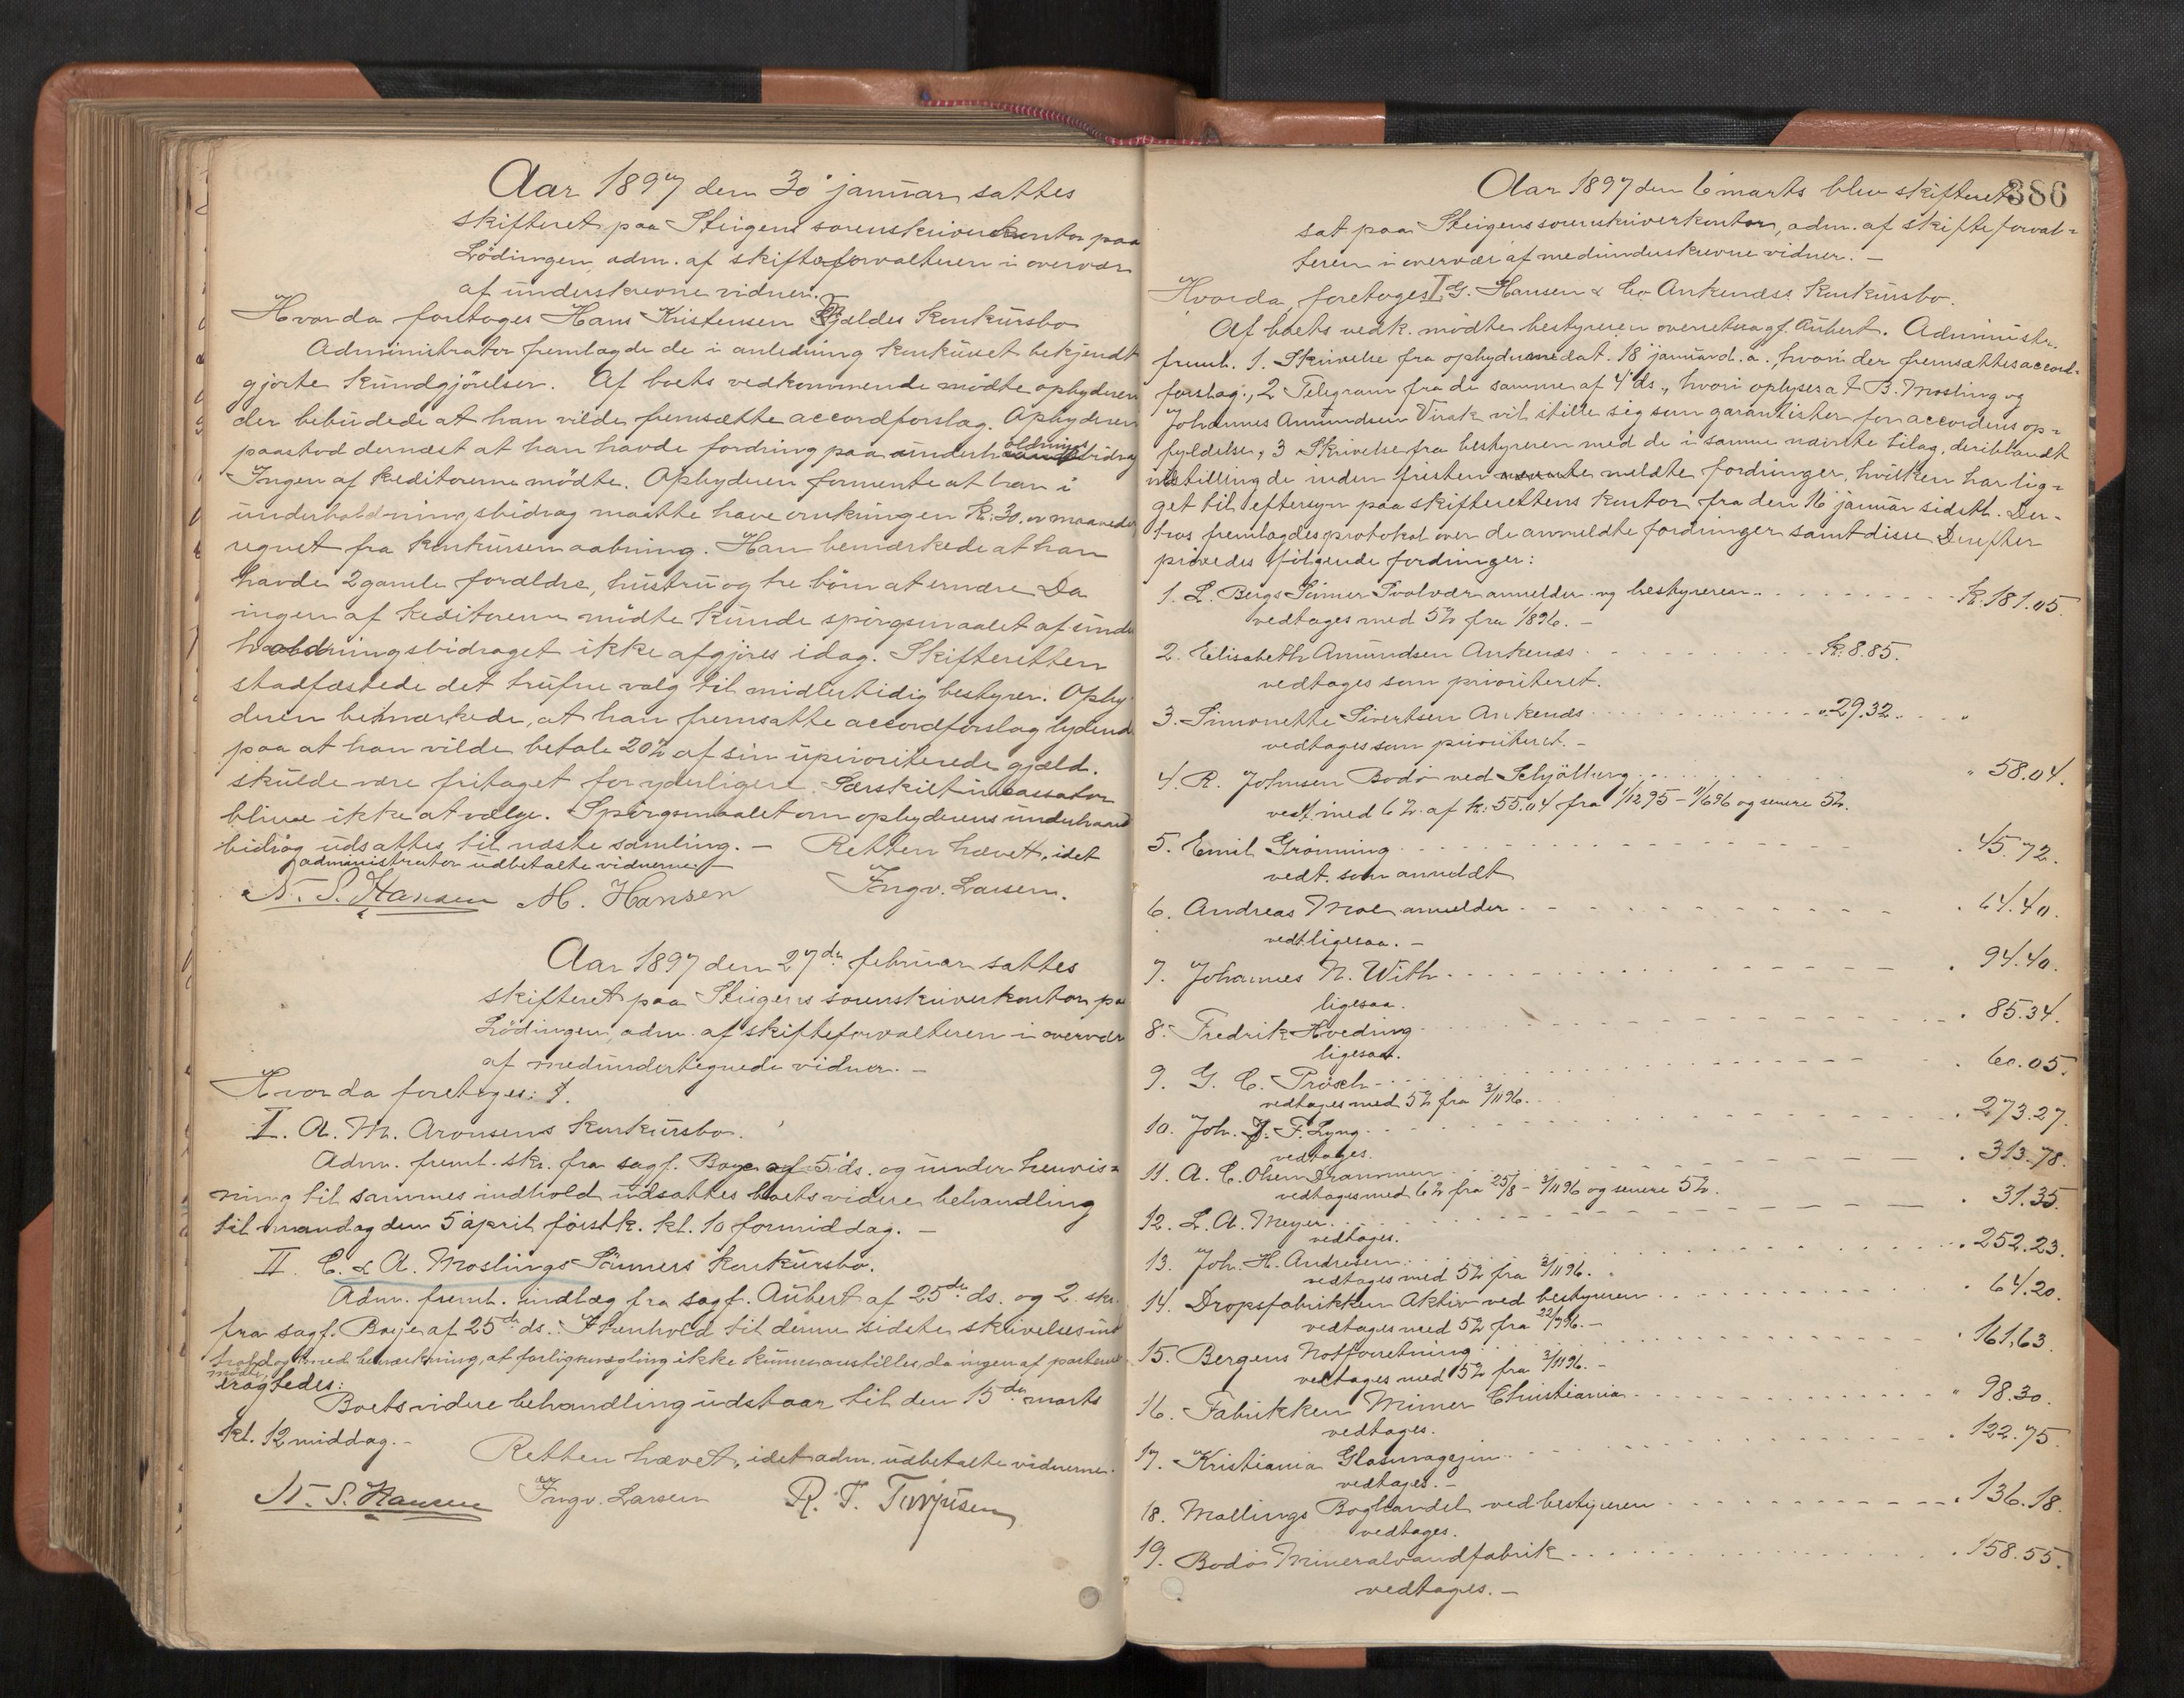 Aar 1897 den 30' januar sattes
skifteret paa Steigens sorenskriverkontor paa
Lödingen, adm. af skifteforvalteren i overvær
af underskrevne vidner.
Hvor da foretoges Hans Kristensen Fjældes Konkursbo
Administrator fremlagde de i anledning konkuset bekjendt
gjorte kundgjörelser. Af boets vedkommende mödte ophyderen
der bebudede at han vilde fremsætte accordforslag. Ophyderen
paastod dernæst at han havde fordring paa underholdningsbidrag
Ingen af kreditorerne mödte. Opbyderen formente at han i
underholdningsbidrag maatte have omkring en Kr. 30 om maaneden
regnet fra konkursens aabning. Han bemærkede at han
havde 2 gamle forældre, hustru og tre börn at ernære Da
ingen af kreditorerne mödte kunde spörgsmaalet af under
holdningsbidraget ikke afgjöres idag. Skifteretten
stadfæstede det trufne valg til midlertidig bestyrer. Opby-
deren bemærkede, at han fremsatte accordforslag lydende
paa at han vilde betale 20% af sin uprioriterede gjæld.
skulde være fritaget for yderligere. Særskilt incassator
bliver ikke at vælge. Spörgsmaalet om opbyderens underhaand
bidrag udsattes til næste samling. – Retten hævet, idet
administrator udbetalte vidnerne.
N. S. Hansen M. Hansen Ingv. Larsen.
Aar 1897 den 27de februar sattes
skifteret paa Steigens sorenskriverkontor paa
Lödingen, adm. af skifteforvalteren i overvær
af medundertegnede vidner. –
Hvor da foretoges:
I. A. M. Aronsens Konkursbo.
Adm. freml. skr. fra sagf. Boye af 5' ds. og under henvis=
ning til sammes indhold udsattes boets videre behandling
til mandag den 5 april förstk. kl. 10 formiddag. –
II. C. & A. Moslings Sönners Konkursbo.
Adm. freml. indlæg fra sagf. Aubert af 25de ds. og 2 skr.
fra sagf. Boye af 25de ds. I henhold til denne sidste skrivelses ind
hold og med bemærkning, at forligsmægling ikke kunne anstilles, da ingen af parterne
mödte,
eragtedes:
Boets videre behandling udstaar til den 15de marts
kl. 12 middag. –
Retten hævet, idet adm. udbetalte vidnerne.
N. S. Hansen Ingv. Larsen R. T. Torjusen
386
Aar 1897 den 6 marts blev skifteret
sat paa Steigens sorenskriverkontor, adm. af skifteforval=
teren i overvær af medunderskrevne vidner. –
Hvor da foretoges I G. Hansen & Co Ankenæss Konkursbo.
Af boets vedk. mödte bestyreren overretssagf. Aubert. Administr.
freml. 1. Skrivelse fra opbyderne dat. 18 januar d. a., hvori der fremsættes accord-
forslag, 2 Telegram fra de samme af 4' ds., hvori oplyses at B. Mosling og
Johannes Amundsen Virak vil stille sig som garantister for accordens op=
fyldelse, 3 Skrivelse fra bestyreren med de i samme nævnte bilag, deriblandt
indstilling de inden fristen meldte fordringer, hvilken har lig=
get til eftersyn paa skifterettens kontor fra den 16 januar sidstl. Der-
hos fremlagdes protokol over de anmeldte fordringer samt disse Derefter
prövedes fölgende fordringer:
1. L. Bergs Sönner Svolvær anmelder og bestyreren . . . Kr. 181.05.
vedtages med 5% fra 1/8 96. –
2. Elisabeth Amundsen Ankenæs . . . Kr. 8.85.
vedtages som prioriteret.
3. Simonette Sivertsen Ankenæs . . . " 29.32.
vedtages som prioriteret. –
4. R. Johnsen Bodö ved Schjölberg . . . " 58.04.
vedt. med 6% af kr. 55.04 fra 1/12 95 – 11/6 96 og senere 5%.
5. Emil Grönning . . . 45.72.
vedt. som anmeldt
6. Andreas Moe anmelder . . . 64.40.
vedt. ligesaa. –
7. Johannes N. With . . . 94.40.
ligesaa.
8. Fredrik Hveding . . . 85.34.
ligesaa.
9. G. C. Prösch . . . 60.05.
vedtages med 5% fra 3/11 96.
10. Joh. F. Lyng . . . 273.27.
vedtages.
11. A. C. Olsen Drammen . . . 313.78.
vedtages med 6% fra 25/8 – 3/11 96 og senere 5%.
12. L. A. Meyer . . . 31.35.
vedtages.
13. Joh. H. Andresen . . . 252.23.
vedtages med 5% fra 3/11 96.
14. Dropsfabrikken Aktiv ved bestyreren . . . 64.20.
vedtages med 5% fra 22/7 96. –
15. Bergens Notforretning . . . 161,63.
vedtages med 5% fra 3/11 96. –
16. Fabrikken Mimer Christiania . . . " 98.30.
vedtages.
17. Kristiania Glasmagazin . . . 122.75.
vedtages. –
18. Mallings Boghandel ved bestyreren . . . 136.18.
vedtages.
19. Bodö Mineralvandfabrik . . . 158.55.
vedtages. –